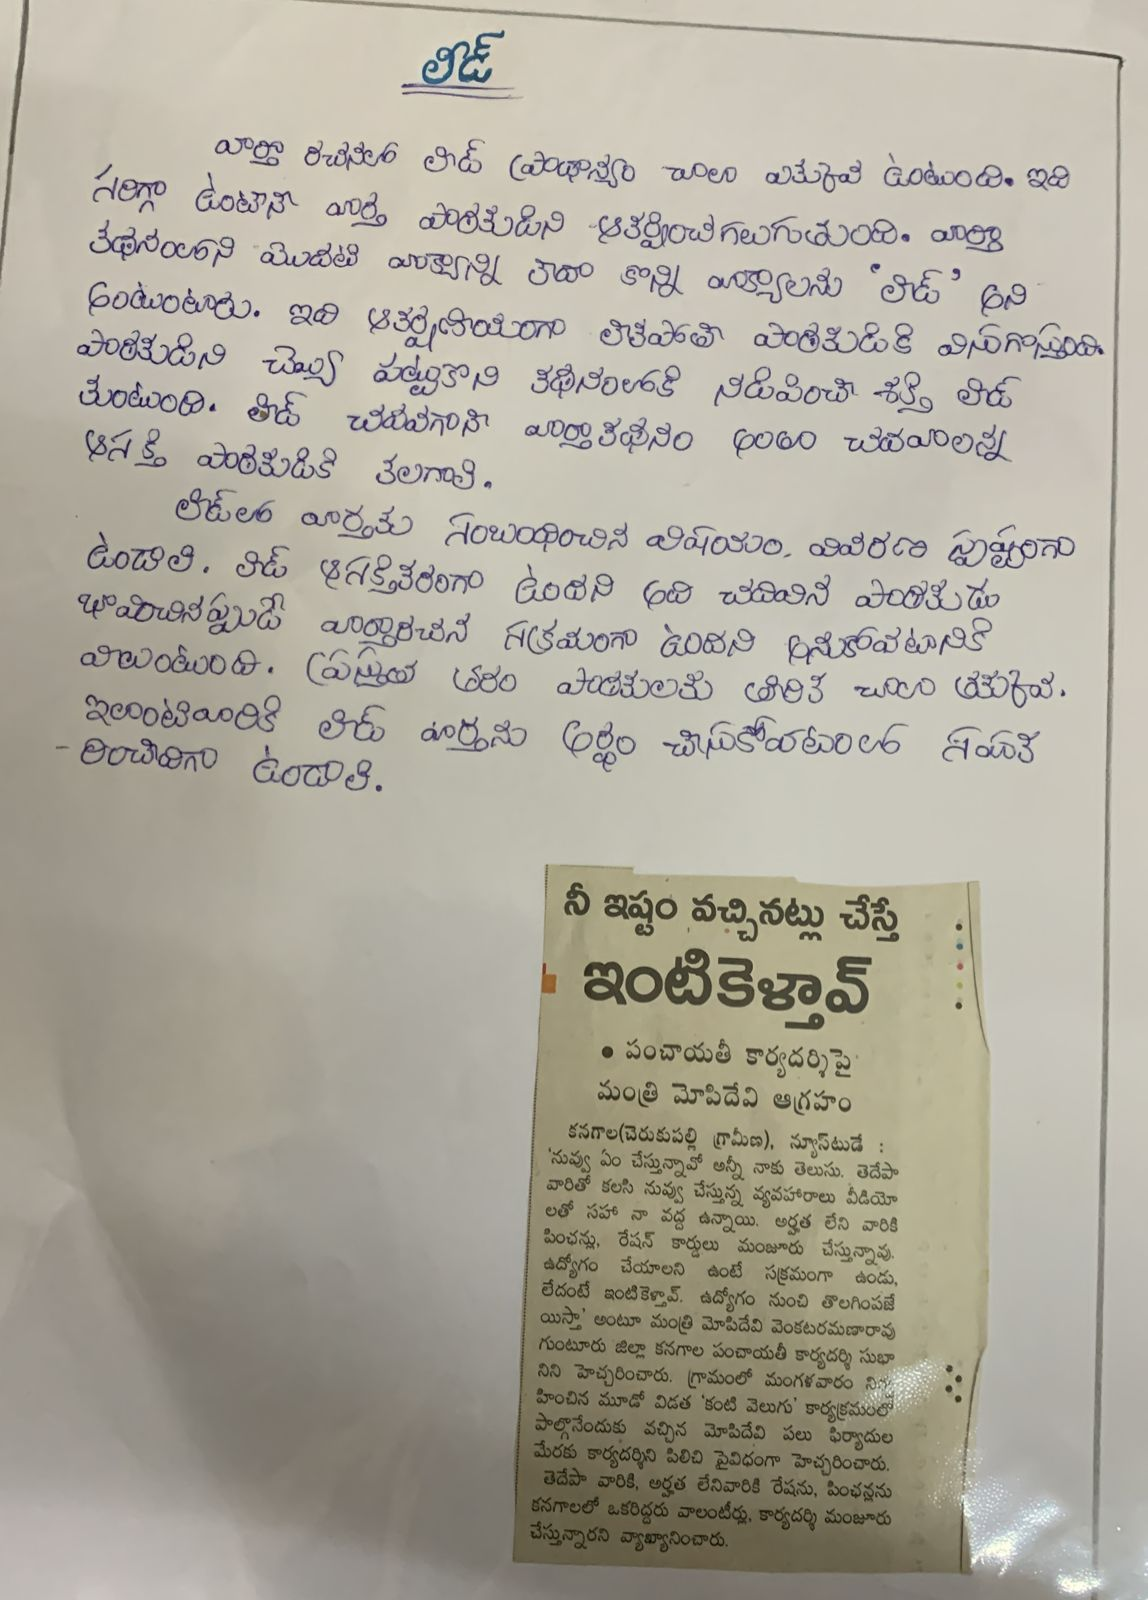 లీడ్
వార్తా రచనలో లీడ్ ప్రాధాన్యం చాలా ఎక్కువ ఉంటుంది. ఇది
సరిగ్గా ఉంటేనే వార్త పాఠకుడిని ఆకర్షించగలుగుతుంది. వార్తా
కథనంలోని మొదటి వాక్యాన్ని లేదా కొన్ని వాక్యాలను 'లీడ్' అని
అంటుంటారు. ఇది ఆకర్షణీయంగా లేకపోతే పాఠకుడికి విసుగొస్తుంది.
పాఠకుడిని చెయ్యి పట్టుకొని కథనంలోకి నడిపించే శక్తి లీడ్
కుంటుంది. లీడ్ చదవగానే వార్తాకథనం అంతా చదవాలన్న
ఆసక్తి పాఠకుడికి కలగాలి.
లీడ్‌లో వార్తకు సంబంధించిన విషయం, వివరణ స్పష్టంగా
ఉండాలి. లీడ్ ఆసక్తికరంగా ఉందని అది చదివిన పాఠకుడు
భావించినప్పుడే వార్తారచన సక్రమంగా ఉందని అనుకోవటానికి
వీలుంటుంది. ప్రస్తుత తరం పాఠకులకు తీరిక చాలా తక్కువ.
ఇలాంటివారికి లీడు వార్తను అర్థం చేసుకోవటంలో సహక
-రించేదిగా ఉండాలి.
నీ ఇష్టం వచ్చినట్లు చేస్తే
ఇంటికెళ్తావ్
• పంచాయతీ కార్యదర్శిపై
మంత్రి మోపిదేవి ఆగ్రహం
కనగాల(చెరుకుపల్లి గ్రామీణ), న్యూస్‌టుడే :
'నువ్వు ఏం చేస్తున్నావో అన్నీ నాకు తెలుసు. తెదేపా
వారితో కలసి నువ్వు చేస్తున్న వ్యవహారాలు వీడియో
లతో సహా నా వద్ద ఉన్నాయి. అర్హత లేని వారికి
పింఛన్లు, రేషన్ కార్డులు మంజూరు చేస్తున్నావు.
ఉద్యోగం చేయాలని ఉంటే సక్రమంగా ఉండు,
లేదంటే ఇంటికెళ్తావ్. ఉద్యోగం నుంచి తొలగింపజే
యిస్తా' అంటూ మంత్రి మోపిదేవి వెంకటరమణారావు
గుంటూరు జిల్లా కనగాల పంచాయతీ కార్యదర్శి సుభా
నిని హెచ్చరించారు. గ్రామంలో మంగళవారం నిర్వ
హించిన మూడో విడత 'కంటి వెలుగు' కార్యక్రమంలో
పాల్గొనేందుకు వచ్చిన మోపిదేవి పలు ఫిర్యాదుల
మేరకు కార్యదర్శిని పిలిచి పైవిధంగా హెచ్చరించారు.
తెదేపా వారికి, అర్హత లేనివారికి రేషను, పింఛన్లను
కనగాలలో ఒకరిద్దరు వాలంటీర్లు, కార్యదర్శి మంజూరు
చేస్తున్నారని వ్యాఖ్యానించారు.